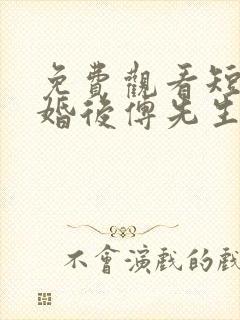 免費觀看短
婚後傅先生
不會演戲的戲